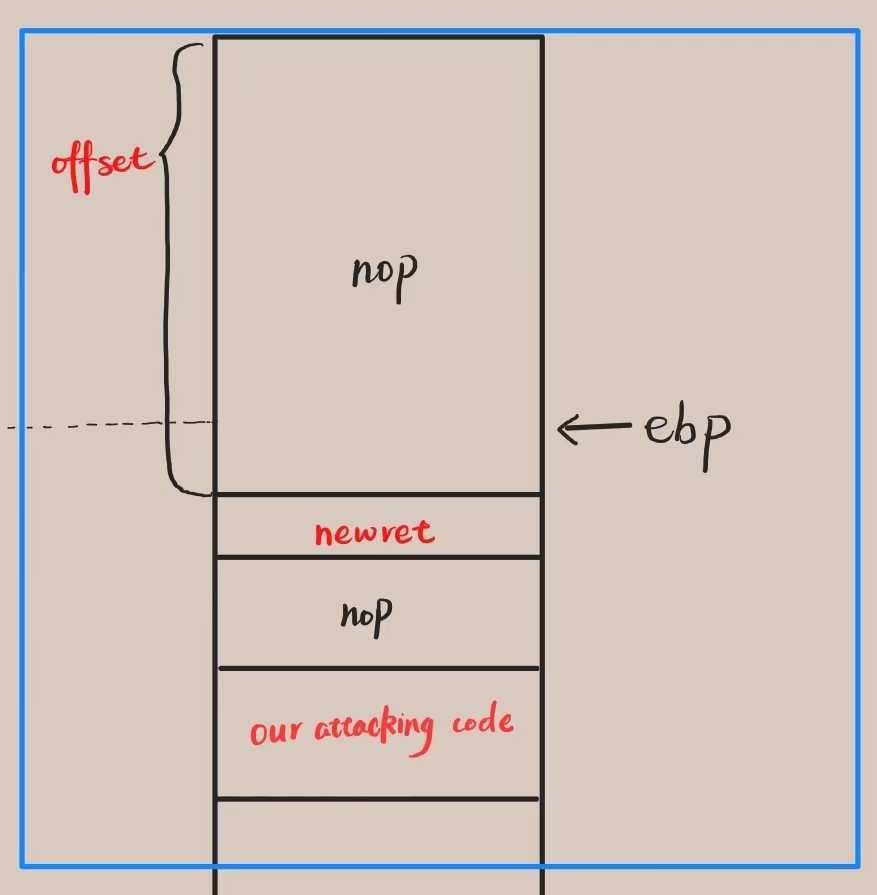 offset
nop
ebp
newret
nop
our attacking code